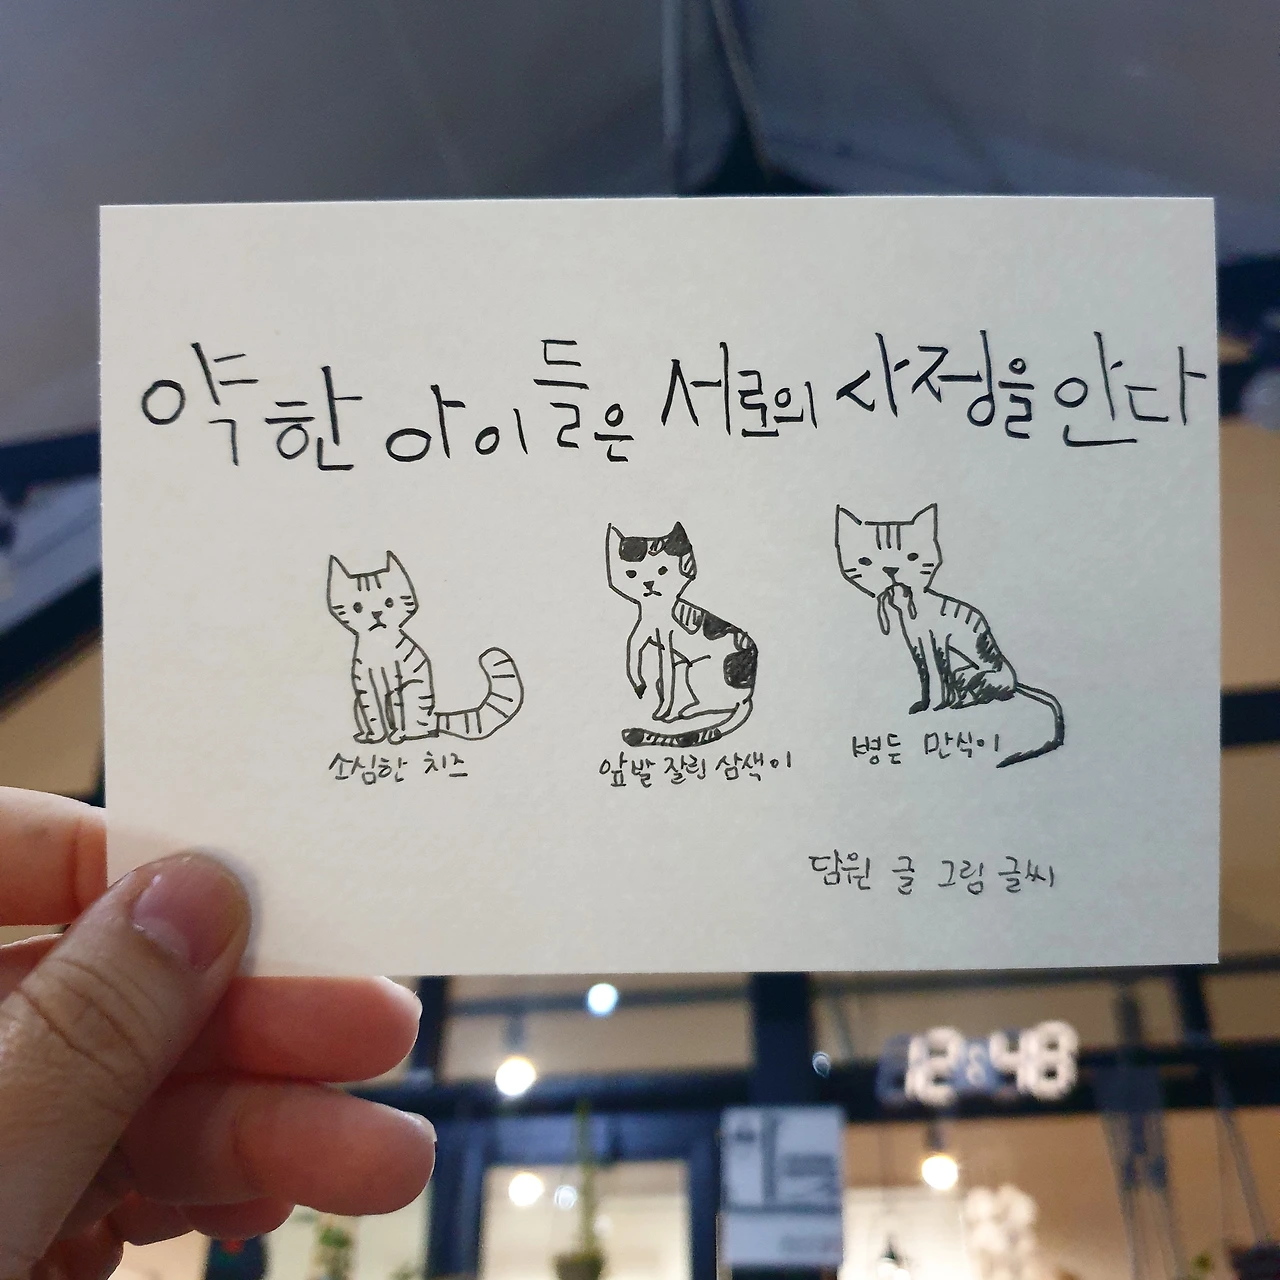 약한 아이들은 서로의 사정을 안다
소심한 치즈
앞발 잘린 삼색이
병든 만식이
담원 글 그림 글씨
12:48